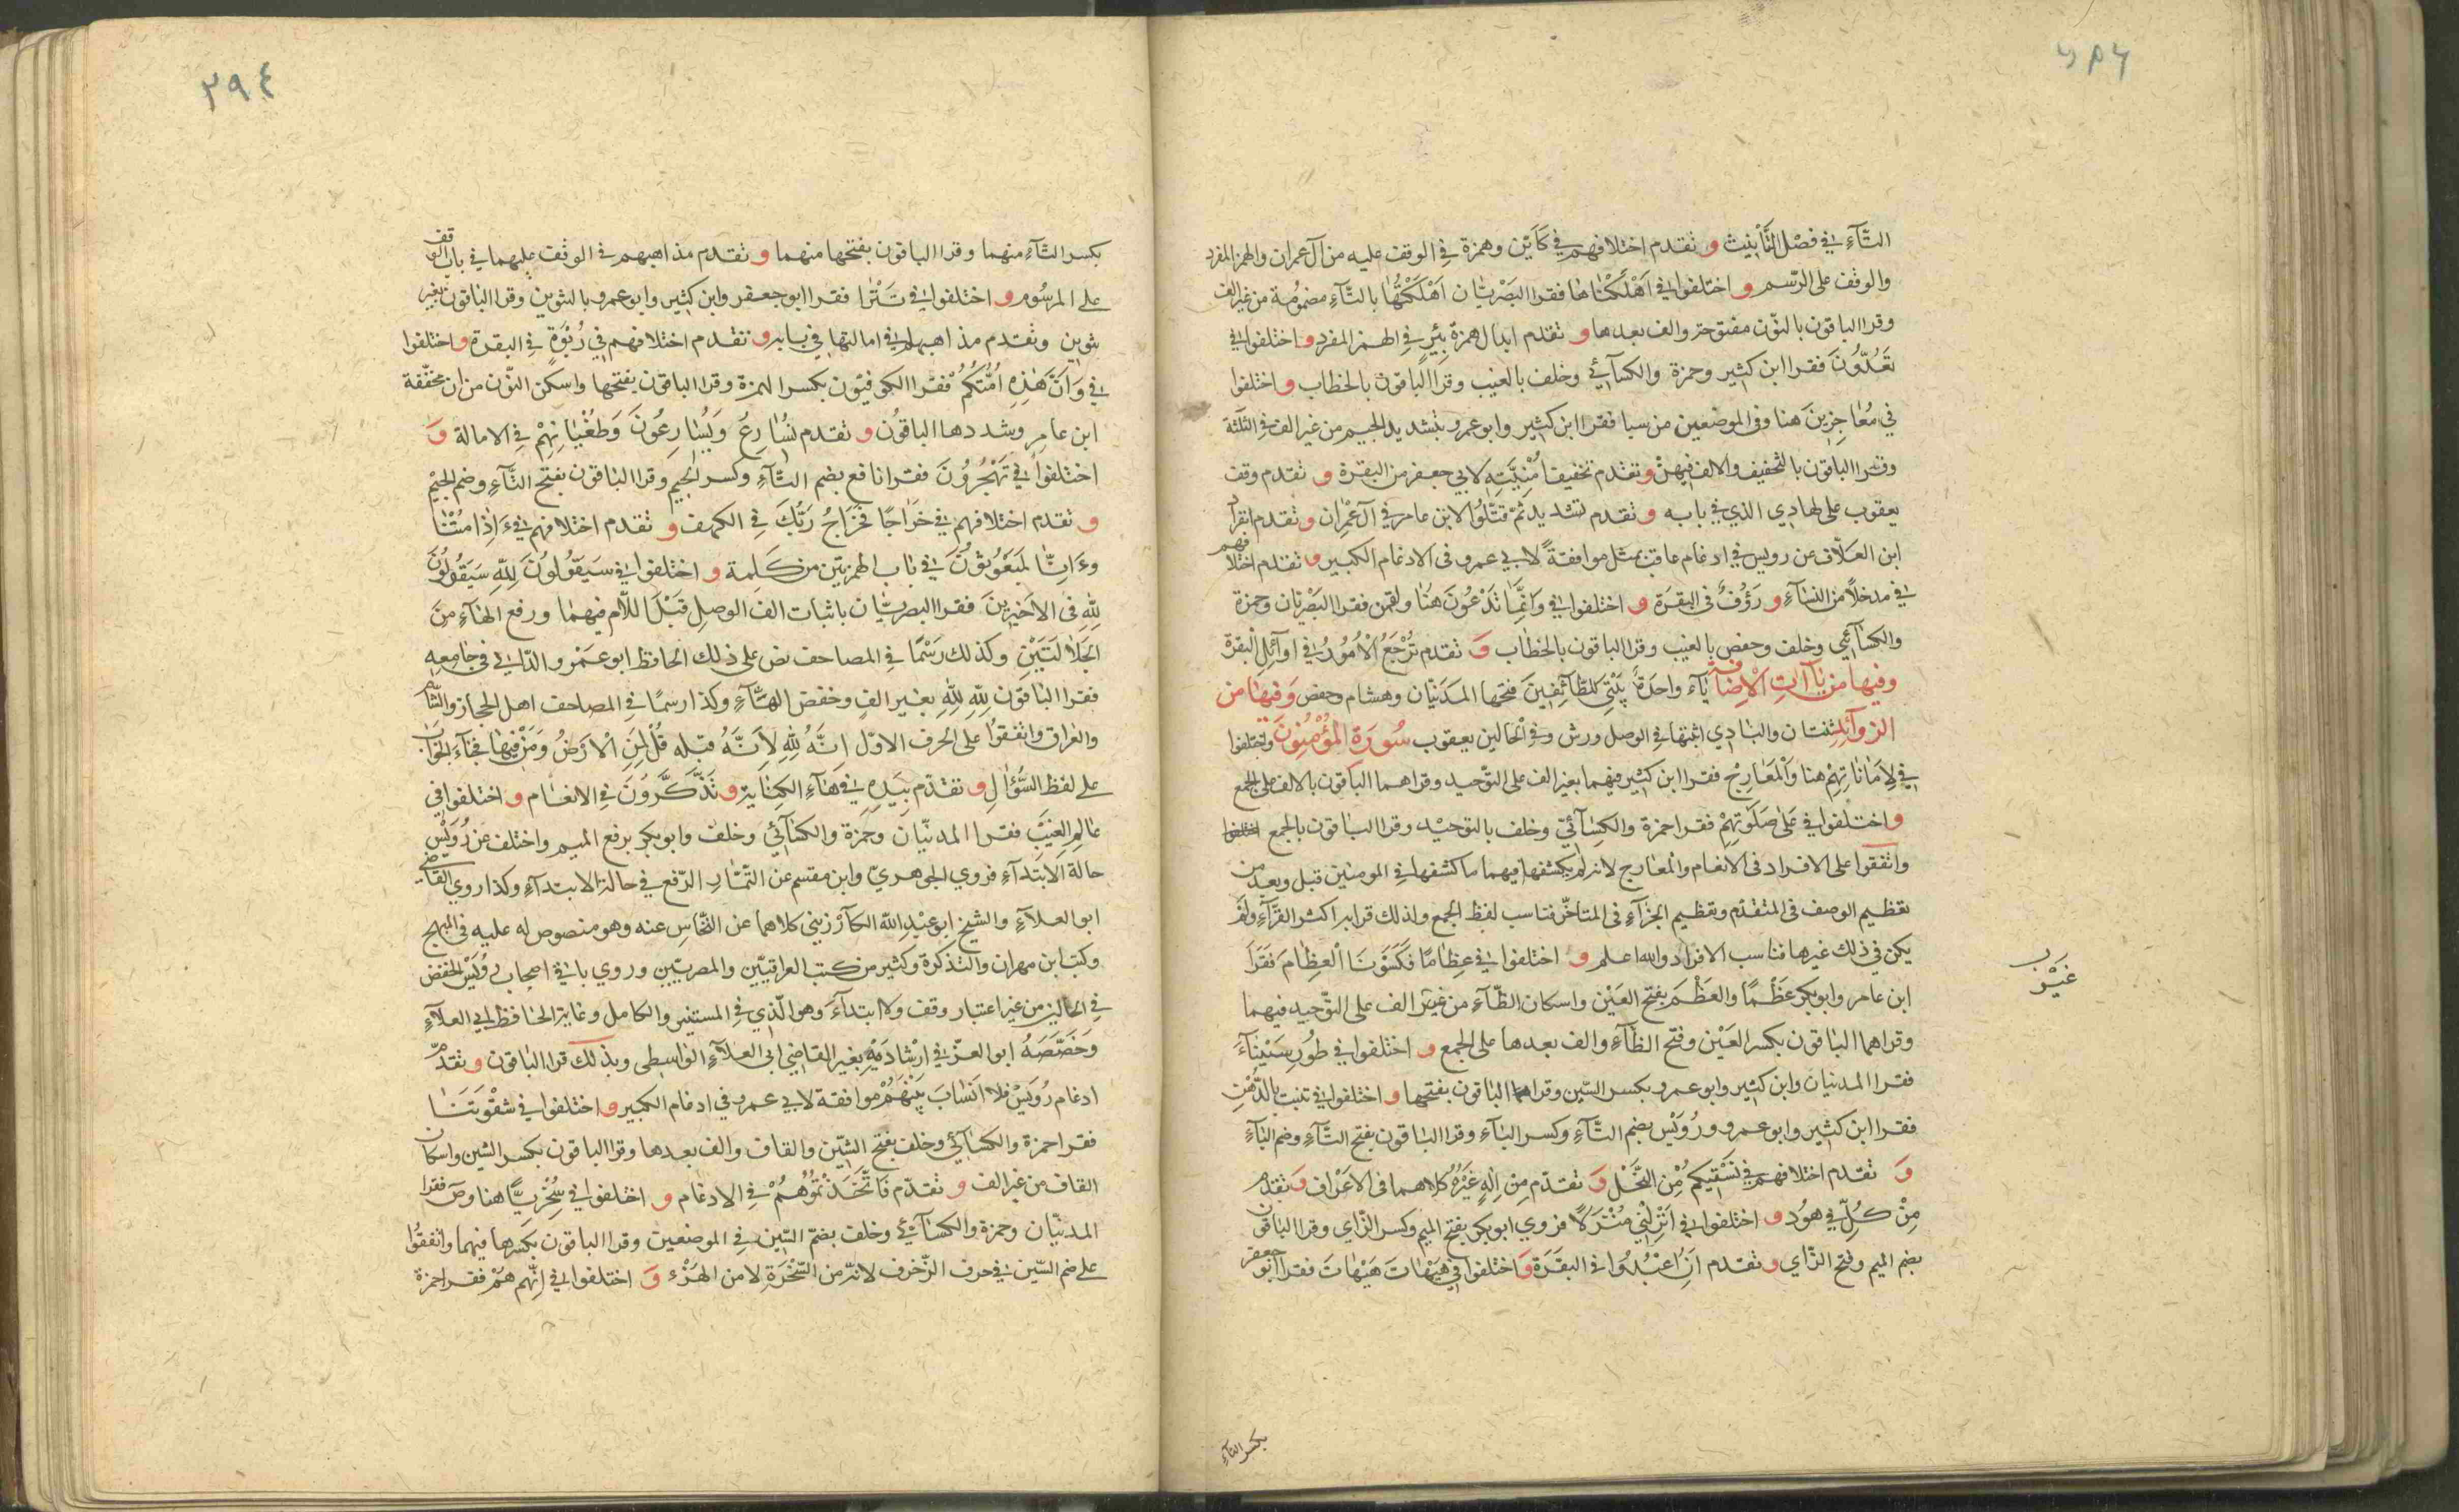 التَّآءِ في فصْل التَّأْنيث و تقدم اختلافهم في كَأَيِّن وهمزة في الوقف عليه من آل عمران والهمز المفرد
والوقف على الرّسم و اختلفوا في اَهْلَكْنَاهَا فقرا البَصْريّان اَهْلَكْتُهَا بالتَّآءِ مضمُومة من غير الف
وقرا الباقون بالنّون مفتوحة والف بعدها و تقدم ابدال همزة بِئْرٍ في الهمز المفرد و اختلفوا في
تَعُدُّونَ فقرا ابن كثير وحمزة والكسآئي وخلف بالغيب وقرا الباقون بالخطاب و اختلفوا
في مُعَاجِزِينَ هنا وفي الموضعين من سبا فقرا ابن كثير وابو عمرو بتشديد الجيم من غير الف في الثلثة
وقرا الباقون بالتخفيف والالف فيهنّ و تقدم تخفيف اُمْنِيَّتِهِ لابي جعفر من البقرة و تقدم وقف
يعقوب على لهادي الذي في بابه و تقدم تشديد ثمّ قتّلُوا لابن عامر في آل عِمْران و تقدم انفراد
ابن العلّاف عن رويس في ادغام عاقب بمثل موافقةً لابي عمرو في الادغام الكبير و تقدم اختلافهم
في مدخلاً من النسَآءِ و رَؤُفٌ في البقرة و اختلفوا في وَاَنَّمَا تَدْعُونَ هنا ولقمن فقرا البَصْريّان وحمزة
والكسَآئِي وخلف وحفص بالغيب وقرا الباقون بالخطاب وَ تقدم تُرْجَعُ الْاُمُورُ في اوآئل البقرة
وفيها من يآءات الاضافة يَآء واحدةٌ بَيْتِيَ لِلطَّآئِفِينَ فتحها المدَنيّان وهشام وحفص وَفيهَا من
الزوآئد ثنتان والبَادِي اثبتها في الوصل ورش وفي الحالين يعقوب سُورَةُ الْمُؤْمِنُونَ واختلفوا
في لِاَمَانَاتِهِمْ هنا وَالْمَعَارِج فقرا ابن كثير فيهما بغير الف على التوحيد وقراهما الباقون بالالف على الجمع
واختلفوا في عَلَى صَلَوَتِهِمْ فقرا حمزة والكِسَآئيّ وخلف بالتوحيْد وقرا البَاقون بالجمع
واتفقوا على الافراد في الانعام والمعارج لانه لم يكتنفها فيهما ما كتنفها في المومنين قبل وبعد من
تعظيم الوصف في المتقدّم وتعظيم الجزآءِ في المتاخّر فناسب لفظ الجمع ولذلك قرا به اكثر القرّآءِ ولم
يكن في ذلك غيرها فناسب الافراد والله اعلم و اختلفوا في عِظَامًا فَكَسَوْنَا الْعِظَامَ فَقَرَا
ابن عامر وابو بكر عَظْمًا والعَظْمَ بفتح العَيْن واسكان الظَّآءِ من غير الف على التوحيد فيهما
وقراهما البَاقون بكسر العَيْن وفتح الظَّآءِ والف بعدها على الجمع و اختلفوا في طُورِ سَيْنَآءَ
فقرا المدنيان وابن كثير وابو عمرو بكسر السّين وقراها البَاقون بفتحها و اختلفوا في تنبت بالدُّهْنِ
فقرا ابن كثير وابو عمرو ورُوَيْس بضم التَّآءِ وكسر البَآءِ وقرا البَاقون بفتح التَّآءِ وضم البَآءِ
وَ تقدم اختلافهم في نَسْقِيكُمْ مِن النّحْل وَ تقدّم مِن اِلَهٍ غَيْرُهُ كلاهما في الاَعْراف وَ تقدم
مِنْ كُلٍّ في هُود و اختلفوا في اَنْزِلْنِي مُنْزَلًا فروي ابو بكر بفتح الميم وكسر الزّاي وقرا البَاقون
بضم الميم وفتح الزّاي و تقدم اَنِ اعْبُدُوا في البَقَرَة وَ اختلفوا في هَيْهَاتَ هَيْهَاتَ فقرا ابُو جعفر
بكسر التآءِ
بكسر التَّآءِ منهما وقرا الباقون بفتحها منهما و تقدم مذاهبهم في الوقف عليهما في باب الوقف
على المرسُوم و اختلفوا في تَتْرَا فقرا ابو جعفر وابن كثير وابو عمرو بالتنوين وقرا الباقون بغير
تنوين وتقدم مذاهبهم في امالتها في بابه و تقدم اختلافهم في رُبْوَةٍ في البقرة و اختلفوا
في وَاَنَّ هٰذِهِ اُمَّتُكُمْ فقرا الكوفيّون بكسر الهمزة وقرا الباقون بفتحها واسكن النّون من ان مخفّفة
ابن عامر وشددها الباقُون و تقدم نُسَارِعُ وَيُسَارِعُونَ وَطُغْيَانِهِمْ في الامالة وَ
اختلفوا في تَهْجُرُونَ فقرا نافع بضم التَّآءِ وكسر الجيم وقرا البَاقون بفتح التَّآءِ وضم الجِيْم
و تقدم اختلافهم في خَرَاجًا فَخَرَاجُ رَبِّكَ في الكهف و تقدم اختلافهم في ءَاِذَا مِتْنَا
وءَاِنَّا لَمَبْعُوثُونَ في بَاب الهمزتين من كَلِمة و اختلفوا في سَيَقُولُونَ لِلَّهِ سَيَقُولُونَ
لِلَّهِ في الاَخيرينَ فقرا البصريّان باثبات الف الوصل قَبْلَ اللّام فيهما ورفع الهَآءِ مِنَ
الجَلالتَيْن وكذلك رَسْمًا في المصاحف نص على ذلك الحافظ ابو عَمْرو الدّاني في جامعه
فقرا البَاقون لِلَّهِ لِلَّهِ بغير الفٍ وخفض الهَآءِ وكذا رسمًا في المصاحف اهل الحجاز والشّام
والعراق واتفقوا على الحرف الاوّل اِنَّهُ لِلَّهِ لِاَنَّهُ قبله قُلْ لِمَنِ الْاَرْضُ وَمَنْ فِيهَا فجَآءَ الجوَاب
على لفظ السُّؤَالِ و تقدّم بِيَدِهِ في هَآءِ الكِنَايَة و تَذَكَّرُونَ في الانعَام و اختلفوا في
عَالِم الغَيْبِ فقرا المدنيّان وحمزة والكسَآئِي وخلف وابو بكر برفع الميم واختلف عن رُوَيْس
حالة الابتدآءِ فروي الجوهريّ وابن مقسم عن التمّار الرّفع في حالة الابتدآءِ وكذا روي القَاضي
ابو العلآءِ والشيخ ابو عبْدِ اللّه الكآرْزيني كلاهما عن النّخّاس عنه وهو منصوص له عليه في المبهج
وكتب ابن مهران والتذكرة وكثير من كتب العراقيّين والمصريّين وروي باقي اصحاب رُوَيْس الخفض
في الحالين من غير اعتبار وقف ولا ابتدآءَ وهو الّذي في المستنير والكامل وغاية الحافظ ابي العلآءِ
وَخَصّصَهُ ابو العزّ في ارْشادَيْه بغير القاضي ابي العلآءِ الواسطي وبذلك قرا الباقون و تقدّم
ادغام رُوَيْس فلا اَنْسَابَ بَيْنَهُمْ موافقة لابي عمرو في ادغام الكبير و اختلفوا في شِقْوَتنَا
فقرا حمزة والكسَآئِي وخلف بفتح الشّين والقاف والف بعدها وقرا الباقون بكسر الشين واسكان
القاف من غير الف و تقدّم فَاتَّخَذْتُمُوهُمْ في الادغام و اختلفوا في سُخْرِيًّا هنا وصَ فقرا
المدنيّان وحمزة والكسَآئِي وخلف بضمّ السّين في الموضعين وقرا الباقون بكسرها فيهما واتفقُوا
على ضم السّين في حرف الزّخرف لانّه من السُّخْرَةِ لا من الهَزْءِ وَ اختلفوا في اِنّهم هم فقرا حمزة
٢٩٤